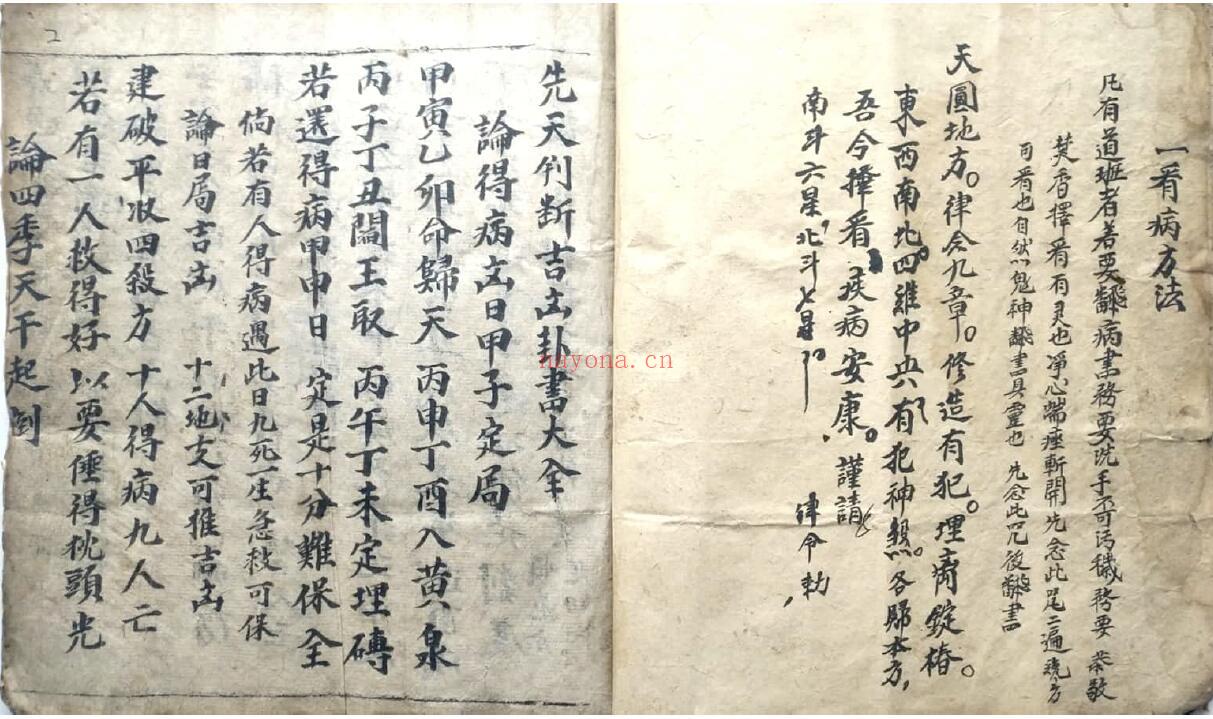 一看病方法
凡有道班者若要翻病書務要洗手不可汚穢務要 恭敬
焚香擇看有灵也净心端座斬開先念此咒二遍 方
可看也自然鬼神 書具靈也 先念此咒後 書
天圓地方。律令九章。修造有犯。埋 錠椿。
東西南北四維中央有犯神煞。各歸本方,
吾今擇看 疾病安康。謹請
南斗六星,北斗七星 律令勅
先天判断吉凶卦書大全
論得病凶日甲子定局
甲寅乙卯命歸天 丙申丁酉入黄泉
丙子丁丑閻王取 丙午丁未定埋磚
若選得病甲申日 定是十分難保全
倘若有人得病遇此日九死一生急救可保
論日局吉凶 十二地支可推吉凶
建破平收四殺方 十人得病九人亡
若有一人救得好 以要 得枕頭光
論四季天干起倒
2
nayona.cn